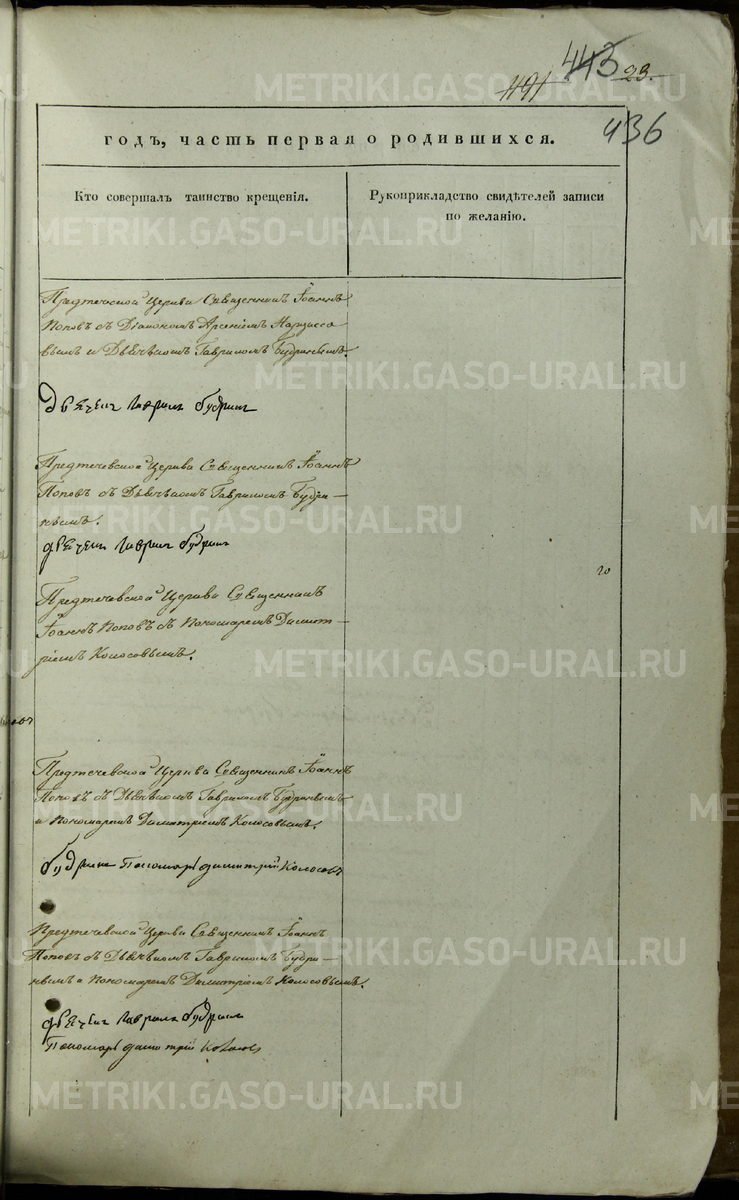 443 23.
1191
436
годъ, часть первая о родившихся.
Кто совершалъ таинство крещенія.
Рукоприкладство свидѣтелей записи
по желанію.
Предтечевской Церкви Священникъ Іоаннъ
Поповъ съ Діакономъ Арсеніемъ Нарцисо-
вымъ и Дьячкомъ Гавриломъ Будринымъ.
Дьячекъ Гаврилъ Будринъ
Предтечевской Церкви Священникъ Іоаннъ
Поповъ съ Дьячкомъ Гавриломъ Будри-
нымъ.
дьячекъ Гаврилъ Будринъ
20
Предтечевской Церкви Священникъ
Іоаннъ Поповъ съ Пономаремъ Димит-
ріемъ Колосовымъ.
Предтечевской Церкви Священникъ Іоаннъ
Поповъ съ Дьячкомъ Гавриломъ Будринымъ
и Пономаремъ Димитріемъ Колосовымъ.
Будринъ Пономарь димитрій Колосовъ
Предтечевской Церкви Священникъ Іоаннъ
Поповъ съ Дьячкомъ Гавриломъ Будри-
нымъ и Пономаремъ Димитріемъ Колосовымъ.
дьячекъ Гаврилъ Будринъ
Пономарь димитрій Колосовъ
METRIKI.GASO-URAL.RU